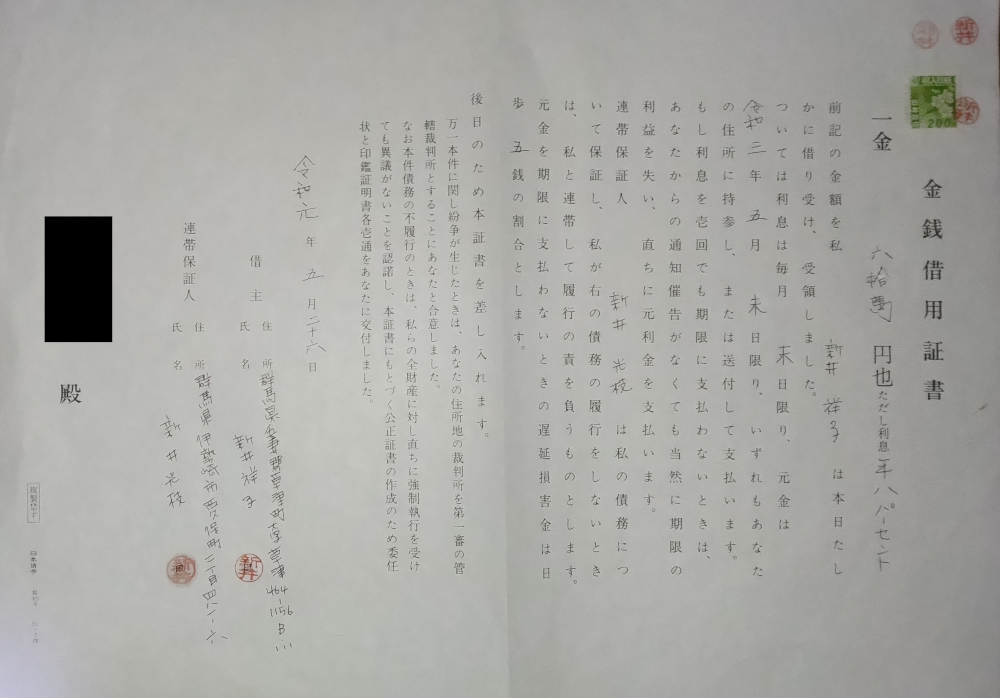 金銭借用証書
200
一金 六拾萬 円也 ただし利息 年八パーセント
前記の金額を私 新井祥子 は本日たし
かに借り受け、受領しました。
ついては利息は毎月 末 日限り、元金は
令和三年五月 末 日限り、いずれもあなた
の住所に持参し、または送付して支払います。
もし利息を壱回でも期限に支払わないときは、
あなたからの通知催告がなくても当然に期限の
利益を失い、直ちに元利金を支払います。
連帯保証人 新井 光枝 は私の債務につ
いて保証し、私が右の債務の履行をしないとき
は、私と連帯して履行の責を負うものとします。
元金を期限に支払わないときの遅延損害金は日
歩 五 銭の割合とします。
後日のため本証書を差し入れます。
万一本件に関し紛争が生じたときは、あなたの住所地の裁判所を第一審の管
轄裁判所とすることにあなたと合意しました。
なお本件債務の不履行のときは、私らの全財産に対し直ちに強制執行を受け
ても異議がないことを認諾し、本証書にもとづく公正証書の作成のため委任
状と印鑑証明書各壱通をあなたに交付しました。
令和元年五月二十六日
借主 住所 群馬県吾妻郡草津町大字草津464-1156 B
氏名 新井祥子 新井
連帯保証人 住所 群馬県伊勢崎市 町二丁目四八一‐六
氏名 新井光枝
殿
複製禁ず
日本法令